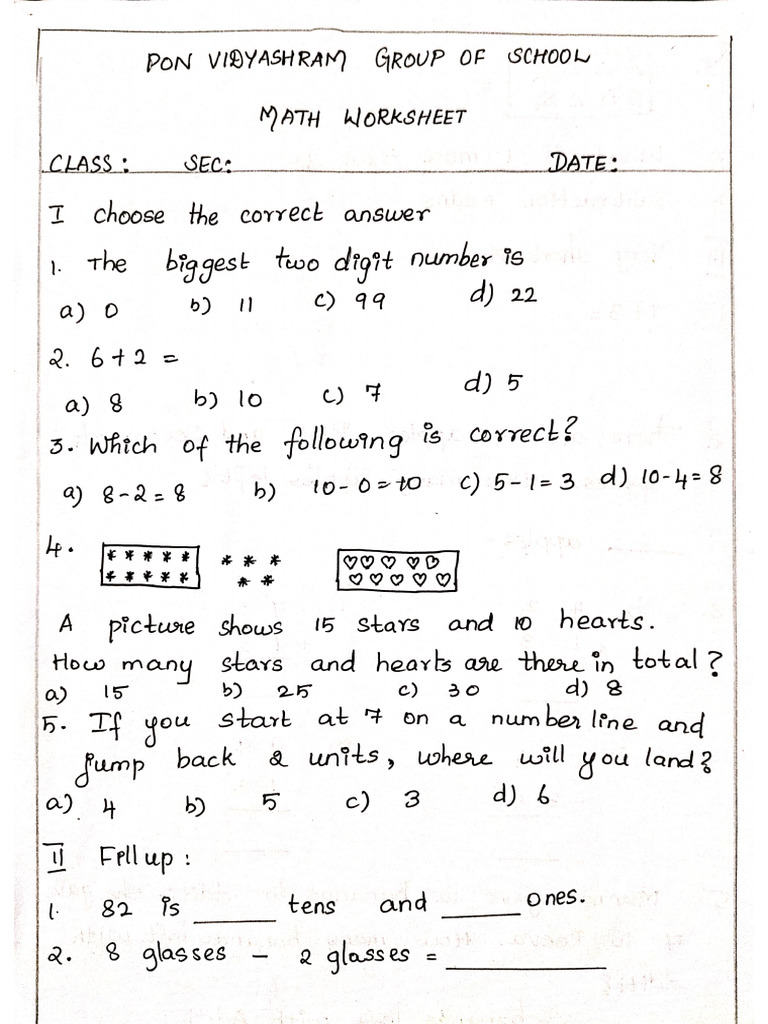 PON VIDYASHRAM GROUP OF SCHOOL
MATH WORKSHEET
CLASS: SEC: DATE:
I choose the correct answer
1. The biggest two digit number is
a) 0 b) 11 c) 99 d) 22
2. 6+2 =
a) 8 b) 10 c) 7 d) 5
3. Which of the following is correct?
a) 8-2=8 b) 10-0=10 c) 5-1=3 d) 10-4=8
4.
A picture shows 15 stars and 10 hearts.
How many stars and hearts are there in total?
a) 15 b) 25 c) 30 d) 8
5. If you start at 7 on a number line and
jump back 2 units, where will you land?
a) 4 b) 5 c) 3 d) 6
II Fill up:
1. 82 is ______ tens and ______ ones.
2. 8 glasses - 2 glasses = ____________